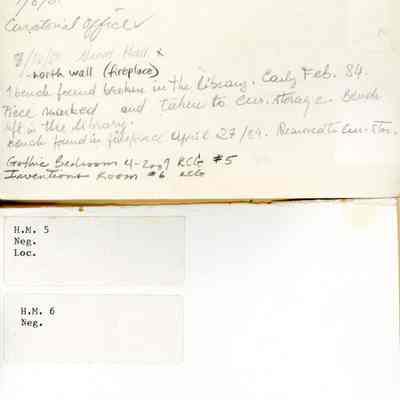 Curatorial Office ✓
Hall x
- north wall (fireplace)
1 bench found broken in the Library. Early Feb. 84.
Piece marked and taken to Cur. Storage. Bench
left in the Library.
Bench found in fireplace April 27/84. Cur. Stor.
Gothic Bedroom 4-2009 RCG #5
Inventions Room #6 RCG
H.M. 5
Neg.
Loc.
H.M. 6
Neg.